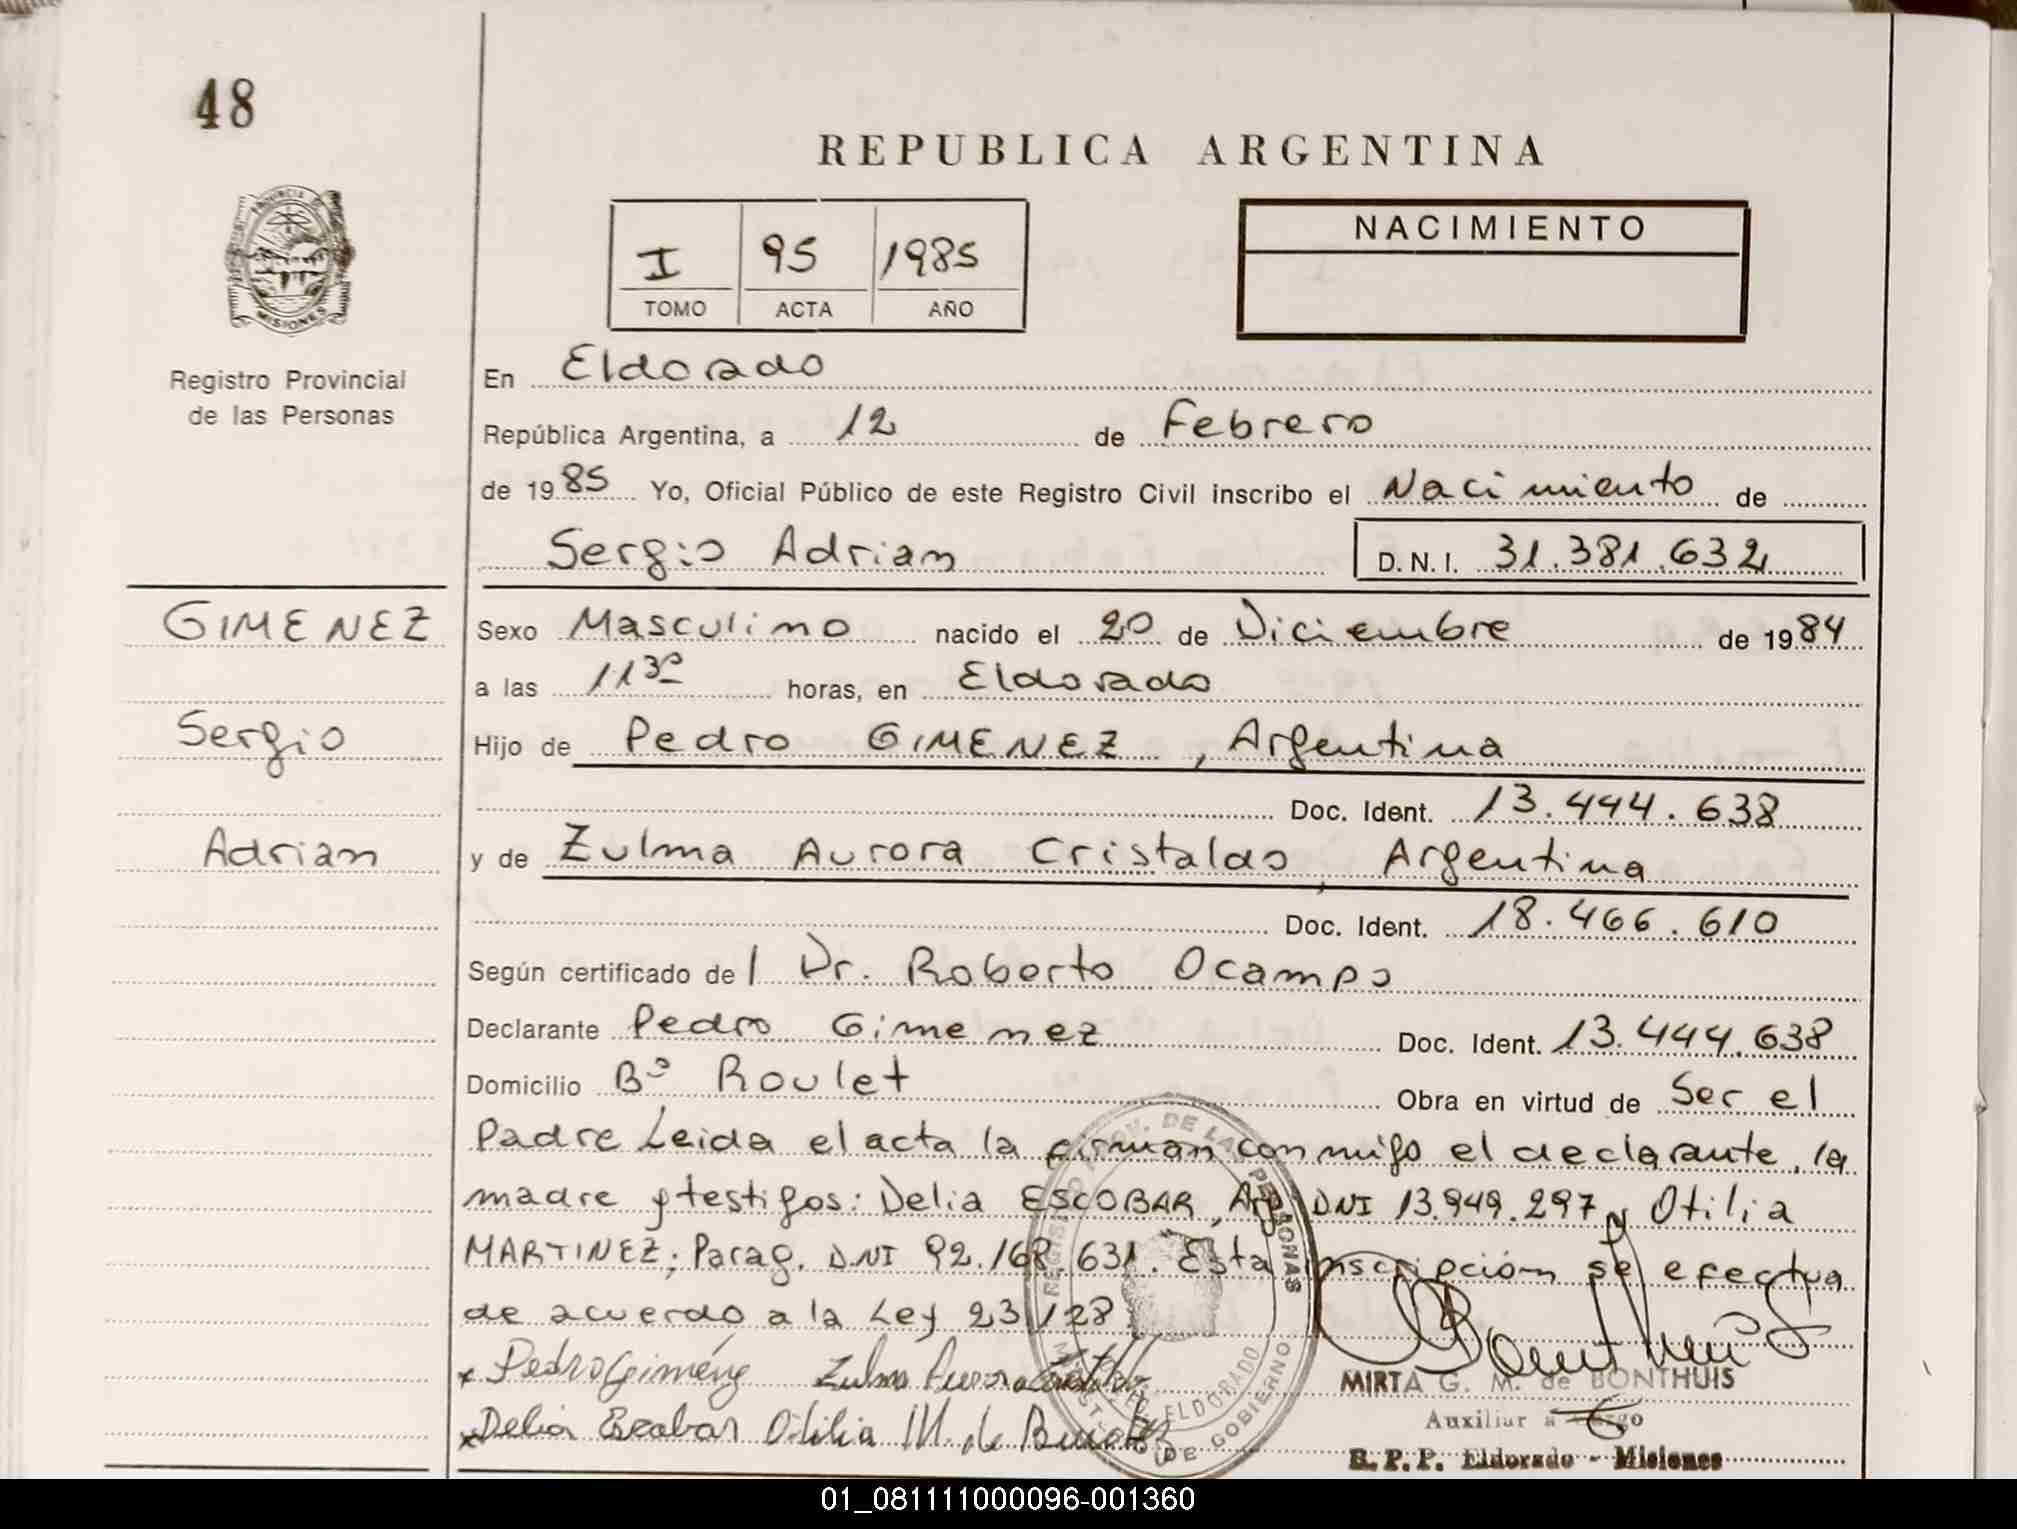 48
REPUBLICA ARGENTINA
PROVINCIA DE
MISIONES
I 95 1985
TOMO ACTA AÑO
NACIMIENTO
Registro Provincial
de las Personas
En Eldorado
República Argentina, a 12 de Febrero
de 1985 Yo, Oficial Público de este Registro Civil inscribo el Nacimiento de
Sergio Adrian D.N.I. 31.381.632
GIMENEZ
Sexo Masculino nacido el 20 de Diciembre de 1984
a las 11³⁰ horas, en Eldorado
Sergio
Hijo de Pedro GIMENEZ, Argentina
Doc. Ident. 13.444.638
Adrian
y de Zulma Aurora Cristaldo, Argentina
Doc. Ident. 18.466.610
Según certificado del Dr. Roberto Ocampo
Declarante Pedro Gimenez Doc. Ident. 13.444.638
Domicilio Bº Roulet Obra en virtud de Ser el
Padre Leida el acta la firman conmigo el declarante, la
madre y testigos: Delia ESCOBAR, Arg. DNI 13.949.297 y Otilia
MARTINEZ; Parag. DNI 92.168.631. Esta inscripción se efectua
de acuerdo a la Ley 23.128
x Pedro Giménez Zulma Aurora Cristaldo
x Delia Escobar Otilia M. de
REGISTRO PROV. DE LAS PERSONAS
ELDORADO
MINIST. DE GOBIERNO
MIRTA G. M. de BONTHUIS
Auxiliar a Cargo
R. P. P. Eldorado - Misiones
01_081111000096-001360